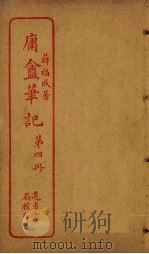 薛福成著
庸盦筆記
第四冊
進
局校